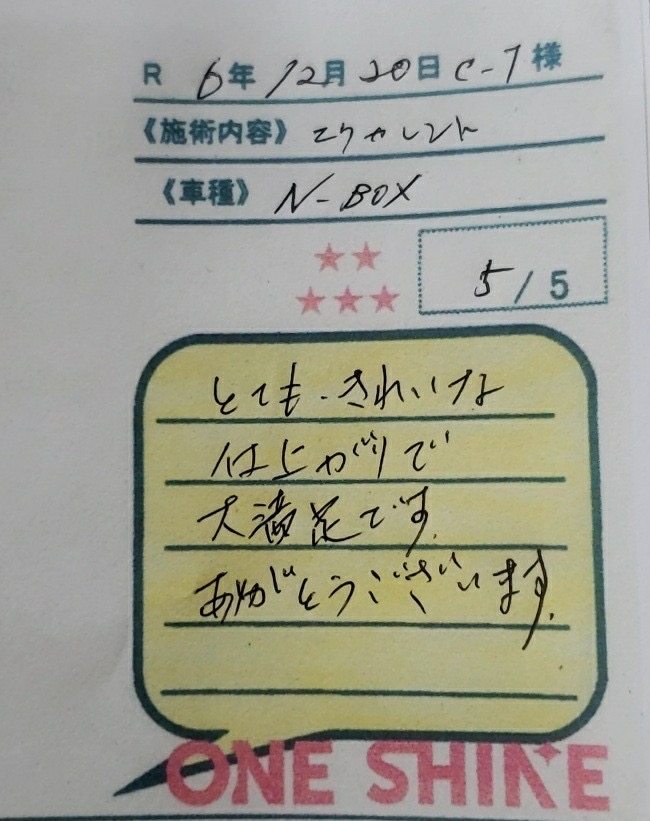 R 6年 12月 20日 C-T 様
《施術内容》 エクセレント
《車種》 N-BOX
★★
★★★
5 / 5
とても、きれいな
仕上がりで
大満足です。
ありがとうございます。
ONE SHINE